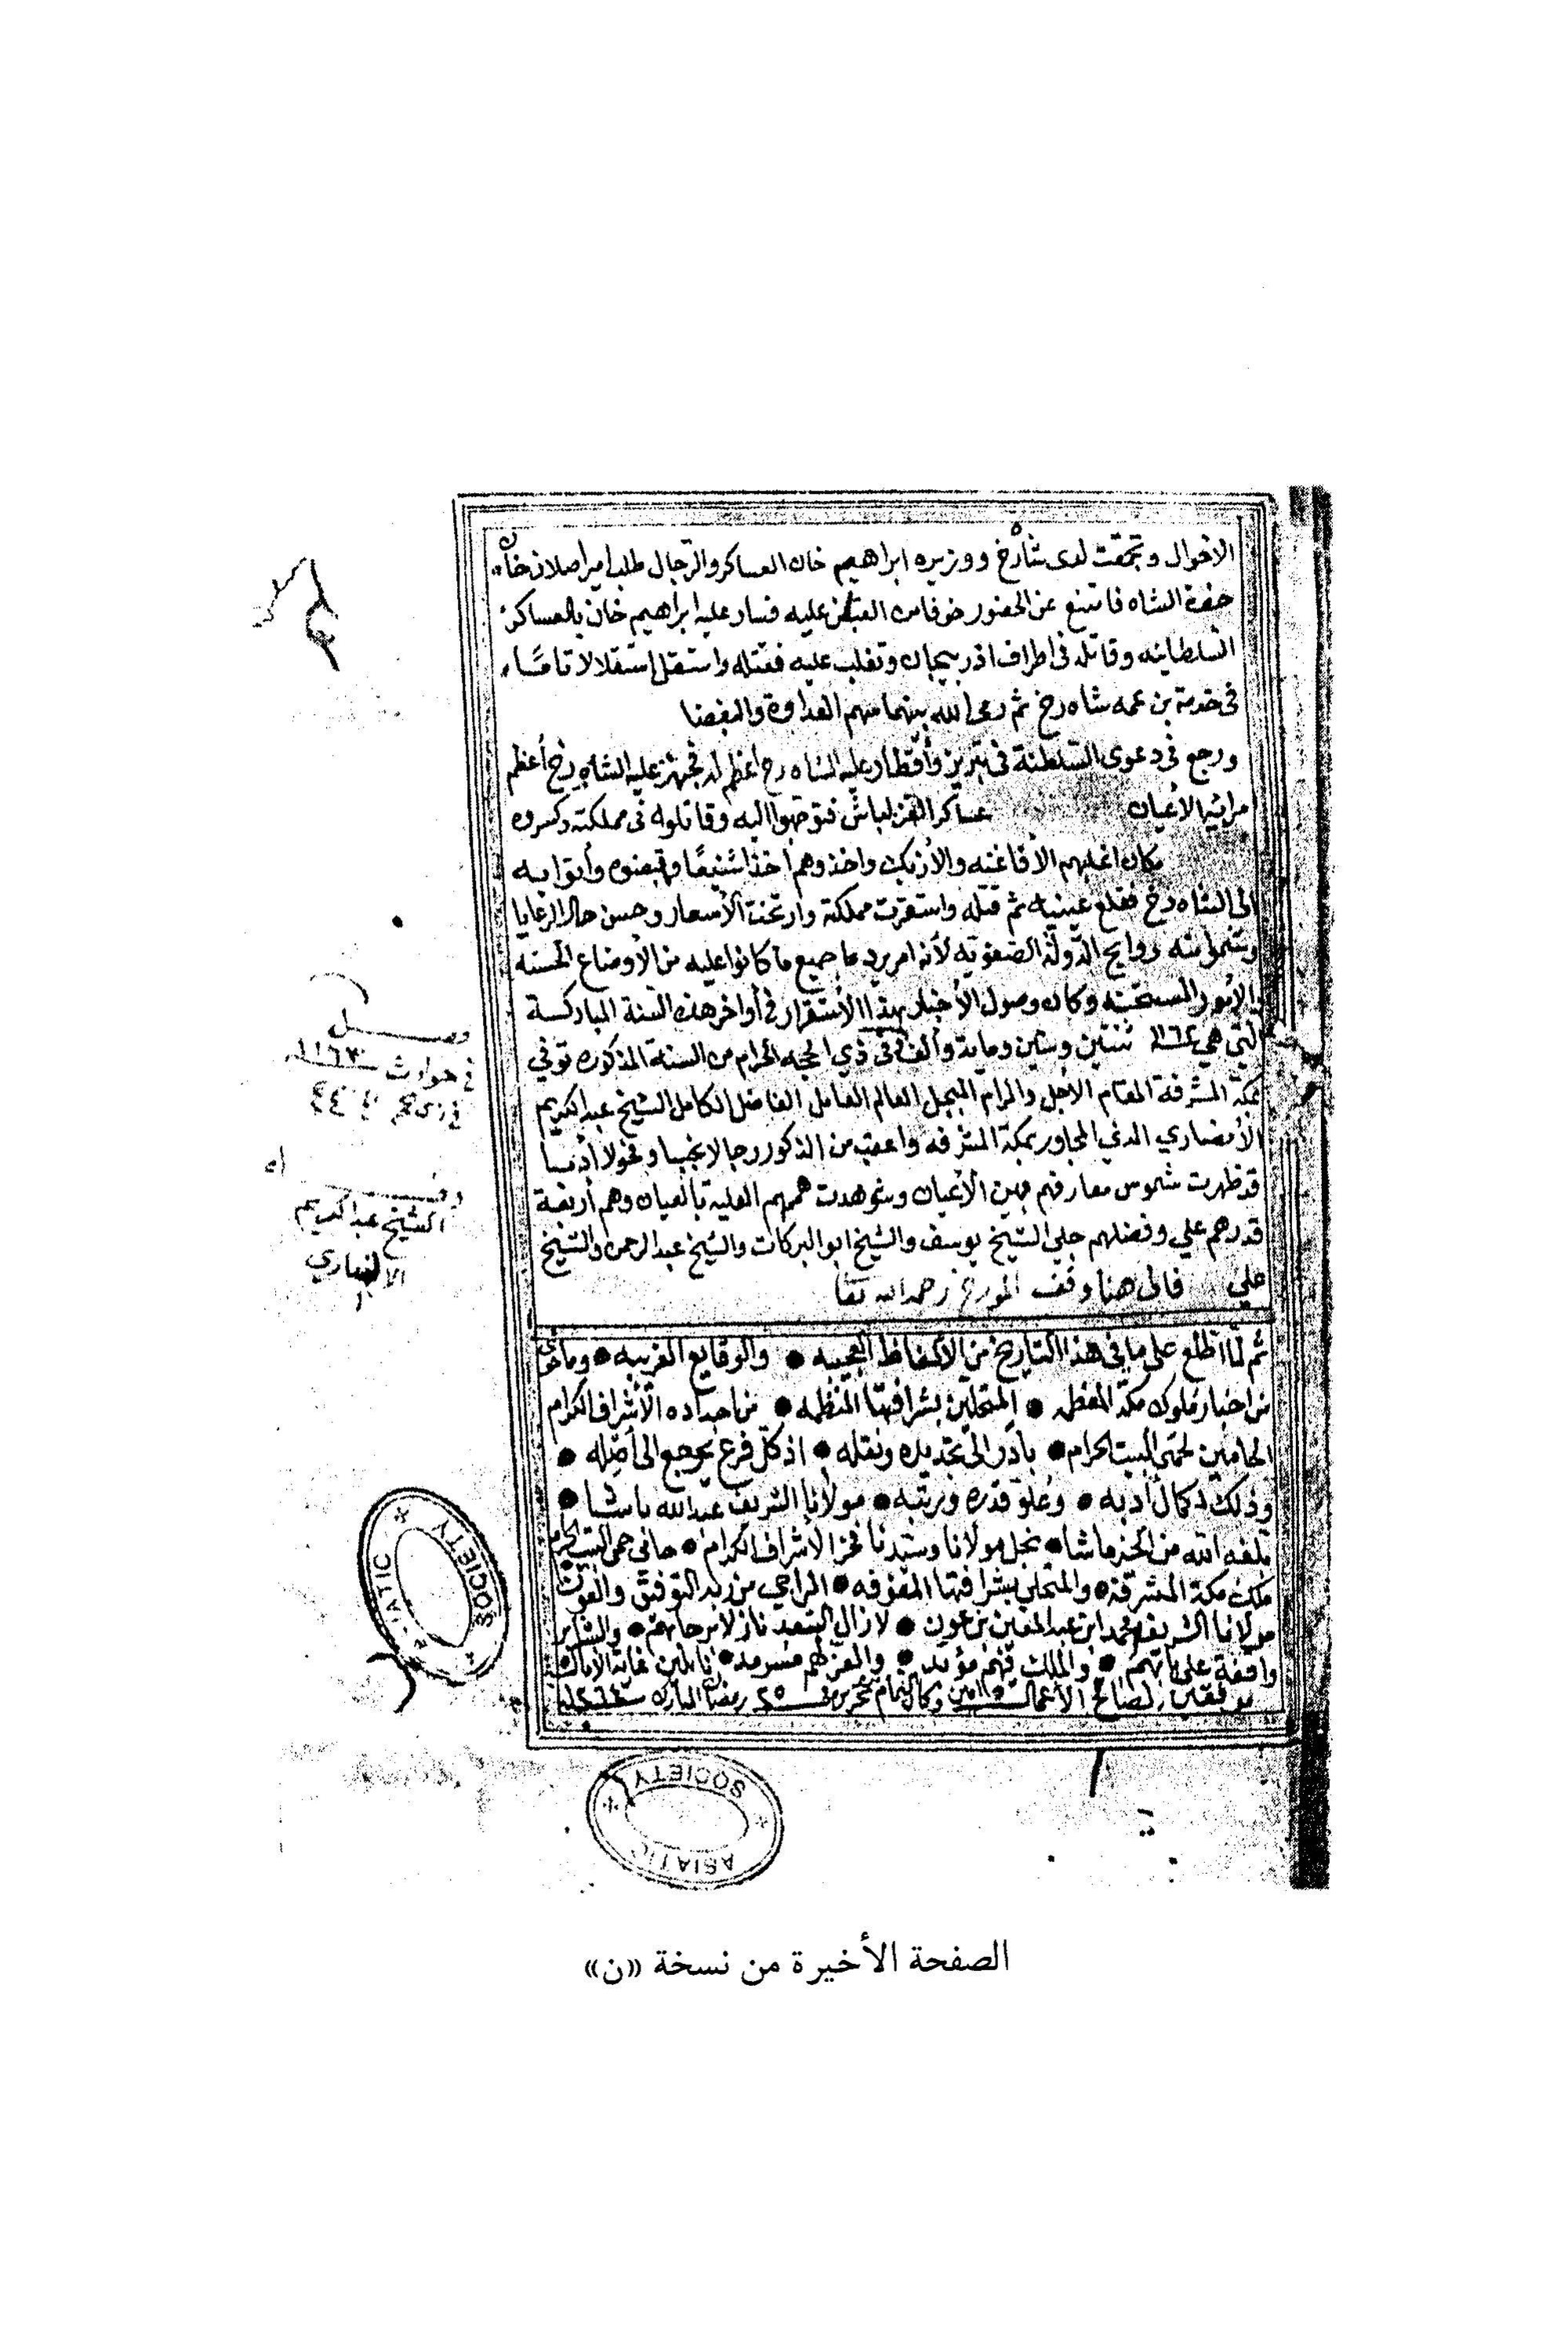 الاحوال وتجمعت لدى شاه رخ ووزيره ابراهيم خان العساكر والرجال طلب امير اصلان خان
حضرة الشاه فامتنع عن الحضور خوفا من القبض عليه فسار عليه ابراهيم خان بالعساكر
السلطانيه وقاتله في اطراف اذربيجان وتغلب عليه فقتله واستقل إستقلالا تامًا
في خدمة بن عمه شاه رخ ثم رمى الله بينهما سهم العداوة والبغضا
ورجع في دعوى السلطنة في تبريز وأقطار عليه الشاه رخ اعظم فجهز عليه الشاه رخ أعظم
الاعيان عساكر القزلباش فتوجهوا اليه وقاتلوه في مملكته وكسروه
وكان اغلبهم الأفاغنه والأزبك واخذوهم أخذا شنيعًا وقبضوه وأتوا به
الى الشاه رخ فقلع عينيه ثم قتله واستقرت مملكته وارتخت الأسعار وحسن حال الرعايا
وشموا منه روايح الدولة الصفويه جميع ما كانوا عليه من الأوضاع الحسنه
والأمور المستحسنه وكان وصول الأخبار بهذا الأستقرار في أواخر هذه السنة المباركة
التي هي ١١٦٢ ثنتين وستين وماية وألف وفي ذي الحجه الحرام من السنة المذكوره توفي
بمكة المشرفة المقام الأجل والمرام المبجل العالم العامل الفاضل الكامل الشيخ عبد الكريم
الأنصاري المدني المجاور بمكة المشرفه واعقب من الذكور رجالا نجبا وفحولا أدبا
قد ظهرت شموس معارفهم بين الأعيان وشوهدت هممهم العلية بالعيان وهم أربعة
قدرهم علي وفضلهم جلي الشيخ يوسف والشيخ ابو البركات والشيخ عبد الرحمن والشيخ
علي فالى هنا وقف المورخ رحمه الله تعا
ثم لما اطلع على ما في هذا التاريخ من الألفاظ العجيبه • والوقايع الغريبه • وما حوى
من اخبار ملوك مكة المعظمه • المتحلين بشرافتها المنظمه • من اجداده الأشراف الكرام
الحامين لحمى البيت الحرام • بادر الى تجديده ونقله • اذ كل فرع يرجع الى أصله •
وذلك لكمال أدبه • وعلو قدره ورتبه • مولانا الشريف عبد الله باشا •
بلغه الله من الخير ما شا • نجل مولانا وسيدنا فخر الأشراف الكرام • حامي حمى البيت الحرام
ملك مكة المشرفة • والمتحلي بشرافتها المفوفه • الراجي من ربه التوفيق والعون
مولانا الشريف محمد ابن عبد المعين بن عون • لا زال السعد نازلا برحابهم •
واقفة على بابهم • والملك فيهم مؤبد • والعز لهم مسرمد • نايلين غاية الأمال
موفقين لصالح الأعمال امين وكان تمام تحريره في ٢٥ رمضان المبارك
وصل
في حوادث ١١٦٣
وف
الشيخ عبد الكريم
الانصاري
ASIATIC SOCIETY
ASIATIC SOCIETY
الصفحة الأخيرة من نسخة «ن»